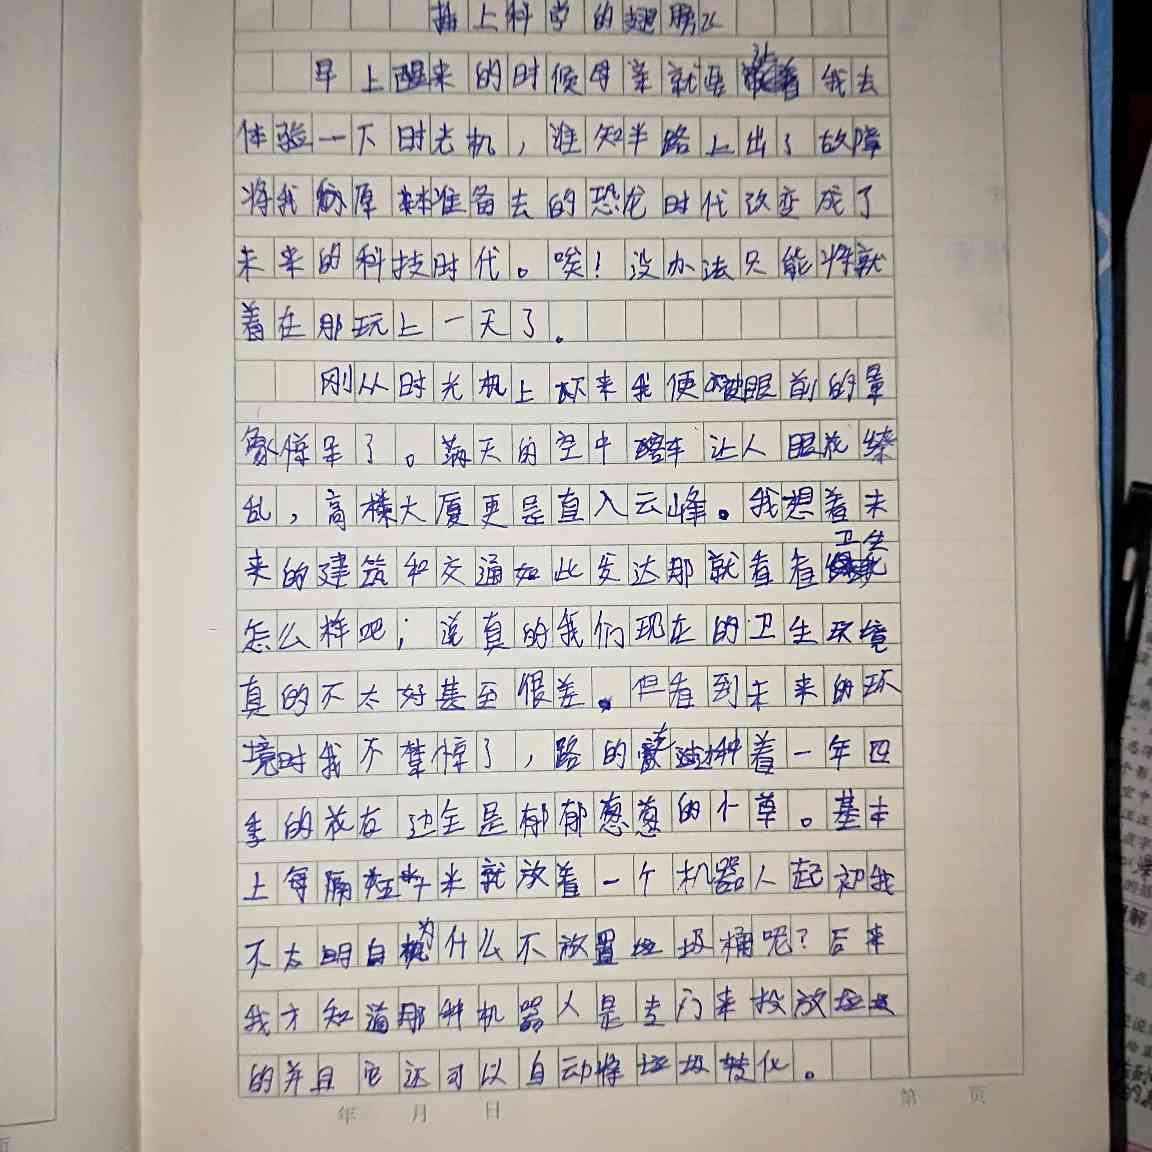 插上科学的翅膀飞
早上醒来的时候母亲就要让我去
体验一下时光机，谁知半路上出了故障
将我原本准备去的恐龙时代改变成了
未来的科技时代。唉！没办法只能将就
着在那玩上一天了。
刚从时光机上下来我便被眼前的景
象惊呆了。满天的空中 车让人眼花缭
乱，高楼大厦更是直入云峰。我想着未
来的建筑和交通如此发达那就看看卫生
怎么样吧；说真的我们现在的卫生环境
真的不太好甚至很差。但看到未来的环
境时我不禁惊了，路的 边种着一年四
季的花在边全是郁郁葱葱的小草。基本
上每隔五千米就放着一个机器人起初我
不太明白为什么不放置垃圾桶呢？后来
我才知道那种机器人是专门来投放垃圾
的并且它还可以自动将垃圾转化。
年 月 日
第 页